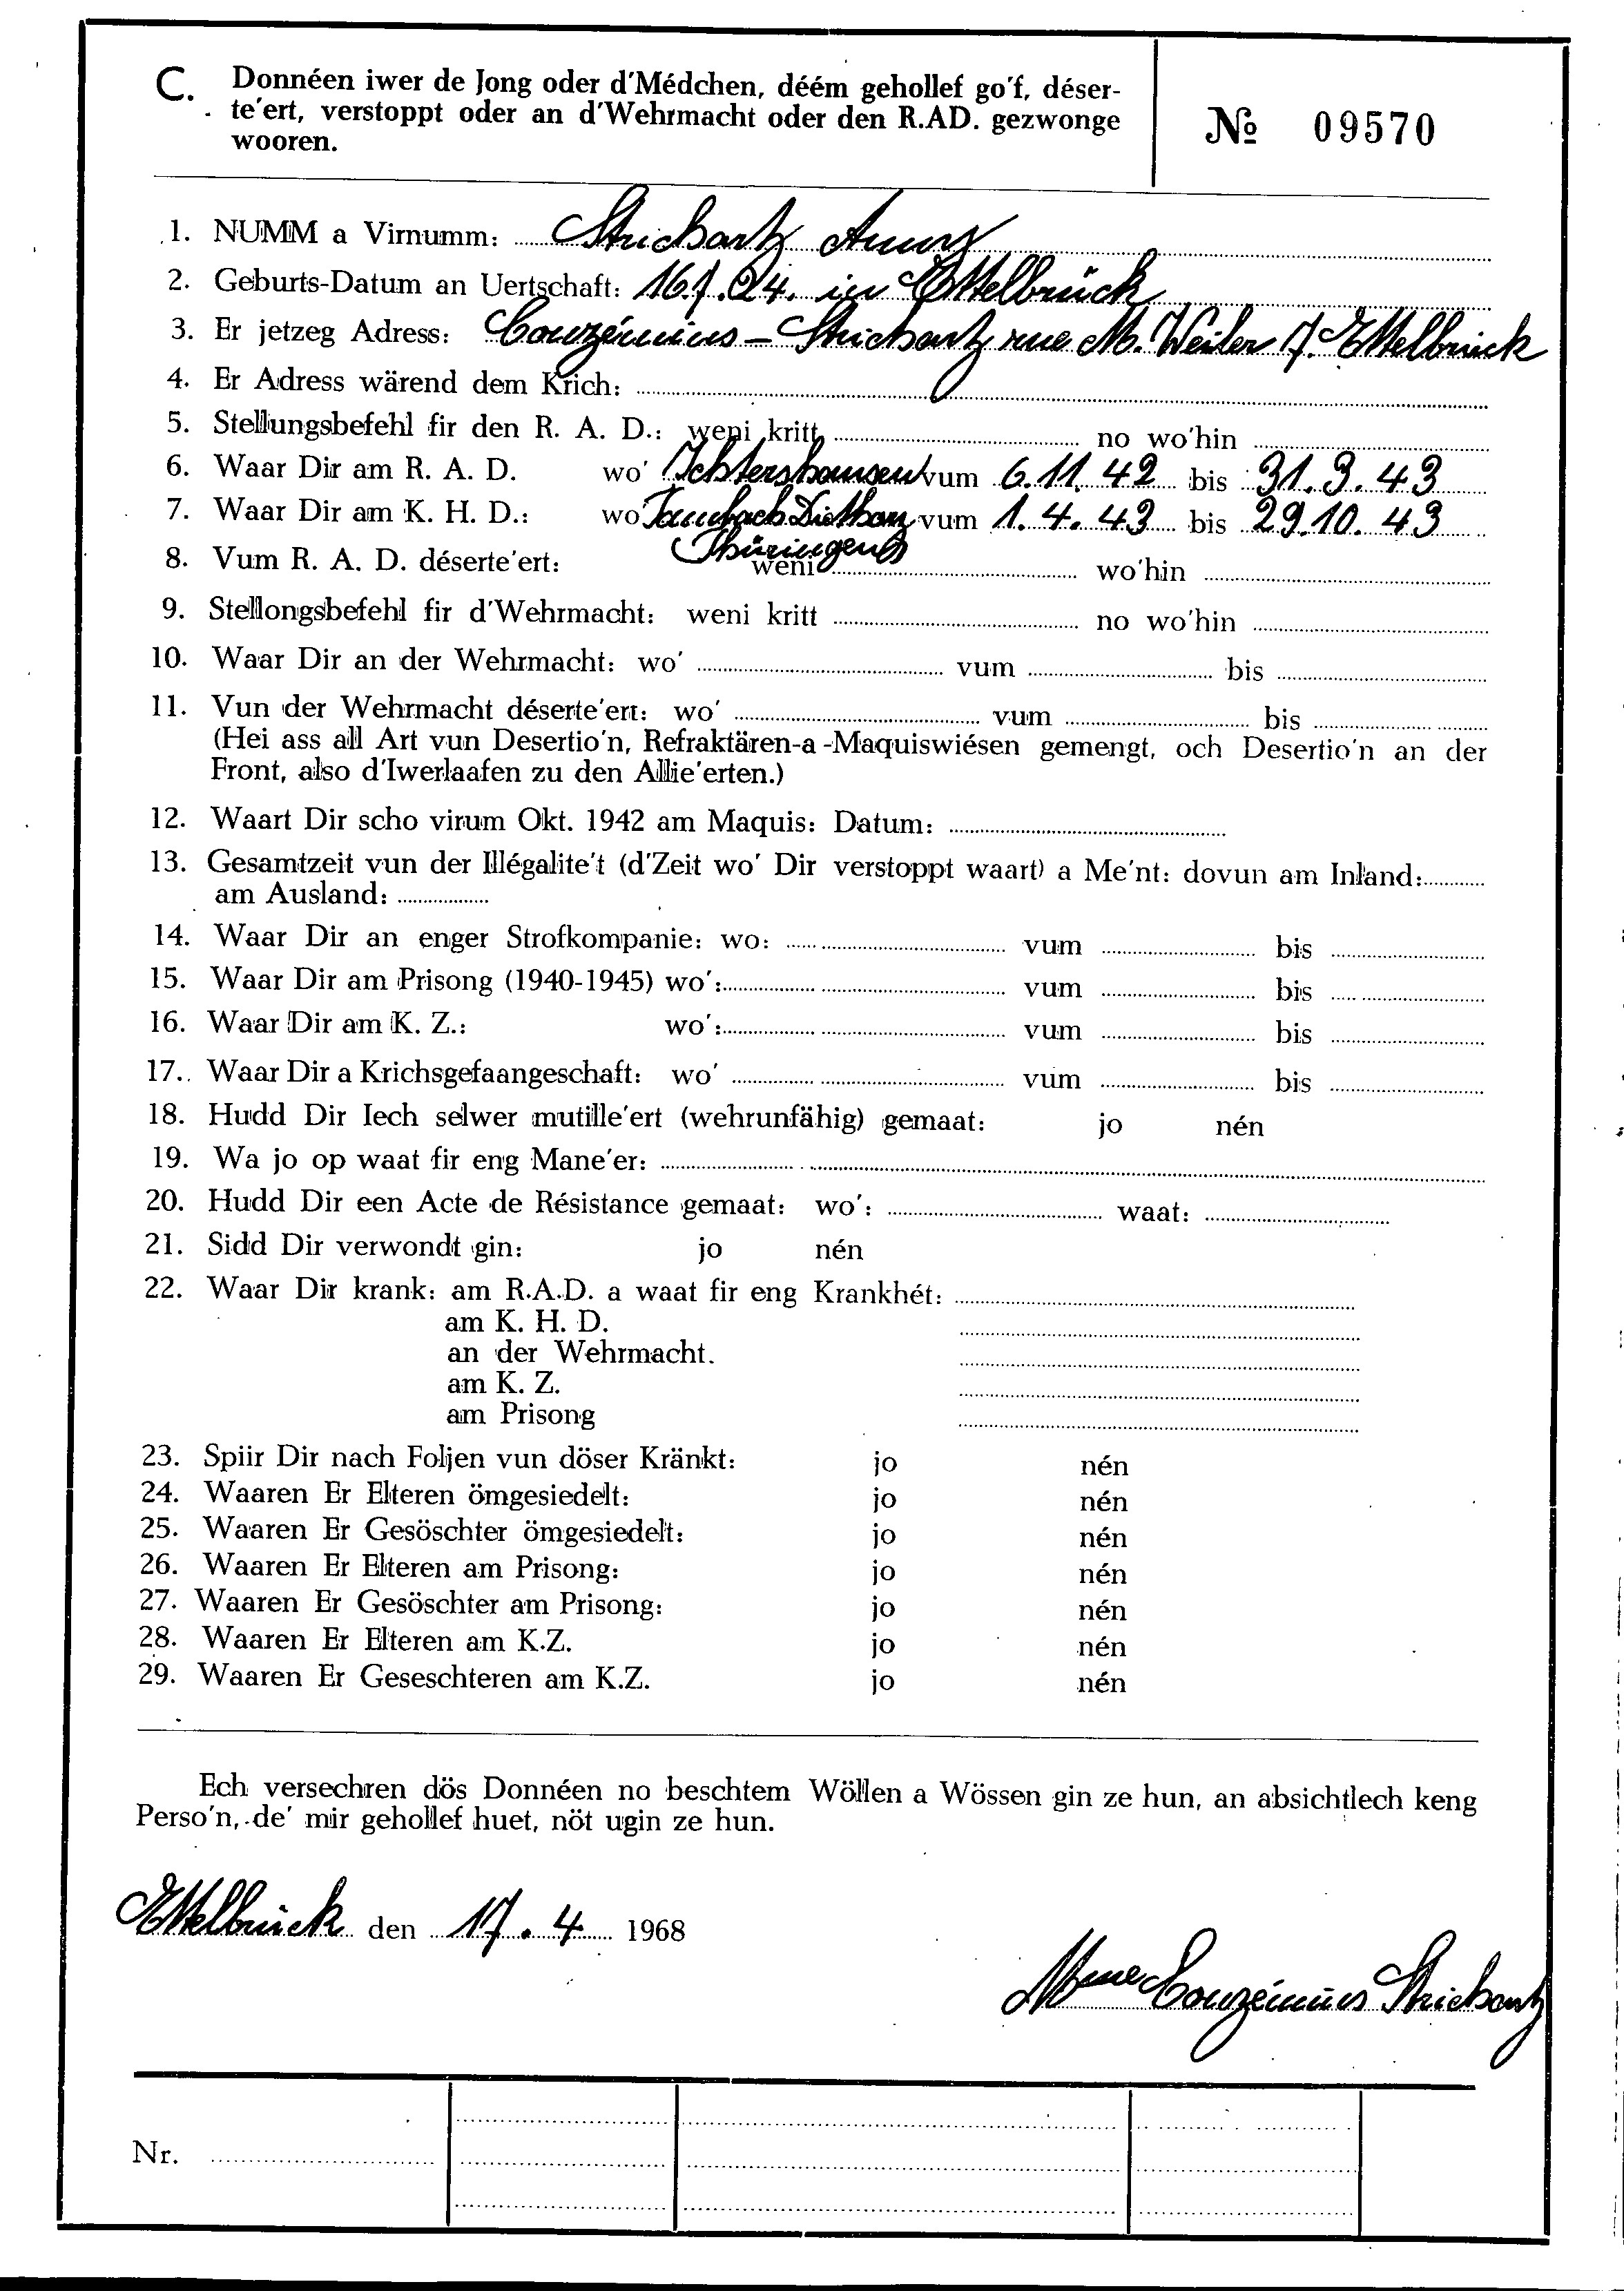 C. Donnéen iwer de Jong oder d'Médchen, déém gehollef go'f, déser-
te'ert, verstoppt oder an d'Wehrmacht oder den R.AD. gezwonge
wooren.
№ 09570
1. NUMM a Virnumm: Strichartz Anny
2. Geburts-Datum an Uertschaft: 16.1.24. in Ettelbrück
3. Er jetzeg Adress: Conzémius - Strichartz rue M. Weiler 7. Ettelbrück
4. Er Adress wärend dem Krich:
5. Stellungsbefehl fir den R. A. D.: weni kritt no wo'hin
6. Waar Dir am R. A. D. wo' Ichtershausen vum 6.11.42 bis 31.3.43
7. Waar Dir am K. H. D.: wo Tambach Dietharz vum 1.4.43 bis 29.10.43
Thüringen
8. Vum R. A. D. déserte'ert: weni wo'hin
9. Stellongsbefehl fir d'Wehrmacht: weni kritt no wo'hin
10. Waar Dir an der Wehrmacht: wo' vum bis
11. Vun der Wehrmacht déserte'ert: wo' vum bis
(Hei ass all Art vun Desertio'n, Refraktären-a-Maquiswiésen gemengt, och Desertio'n an der
Front, also d'Iwerlaafen zu den Allie'erten.)
12. Waart Dir scho virum Okt. 1942 am Maquis: Datum:
13. Gesamtzeit vun der Illégalite't (d'Zeit wo' Dir verstoppt waart) a Me'nt: dovun am Inland:
am Ausland:
14. Waar Dir an enger Strofkompanie: wo: vum bis
15. Waar Dir am Prisong (1940-1945) wo': vum bis
16. Waar Dir am K. Z.: wo': vum bis
17. Waar Dir a Krichsgefaangeschaft: wo' vum bis
18. Hudd Dir Iech selwer mutille'ert (wehrunfähig) gemaat: jo nén
19. Wa jo op waat fir eng Mane'er:
20. Hudd Dir een Acte de Résistance gemaat: wo': waat:
21. Sidd Dir verwondt gin: jo nén
22. Waar Dir krank: am R.A.D. a waat fir eng Krankhét:
am K. H. D.
an der Wehrmacht.
am K. Z.
am Prisong
23. Spiir Dir nach Foljen vun döser Kränkt: jo nén
24. Waaren Er Elteren ömgesiedelt: jo nén
25. Waaren Er Gesöschter ömgesiedelt: jo nén
26. Waaren Er Elteren am Prisong: jo nén
27. Waaren Er Gesöschter am Prisong: jo nén
28. Waaren Er Elteren am K.Z. jo nén
29. Waaren Er Geseschteren am K.Z. jo nén
Ech versechren dös Donnéen no beschtem Wöllen a Wössen gin ze hun, an absichtlech keng
Perso'n, de' mir gehollef huet, nöt ugin ze hun.
Ettelbrück den 17. 4 1968
Mme Conzémius Strichartz
Nr.